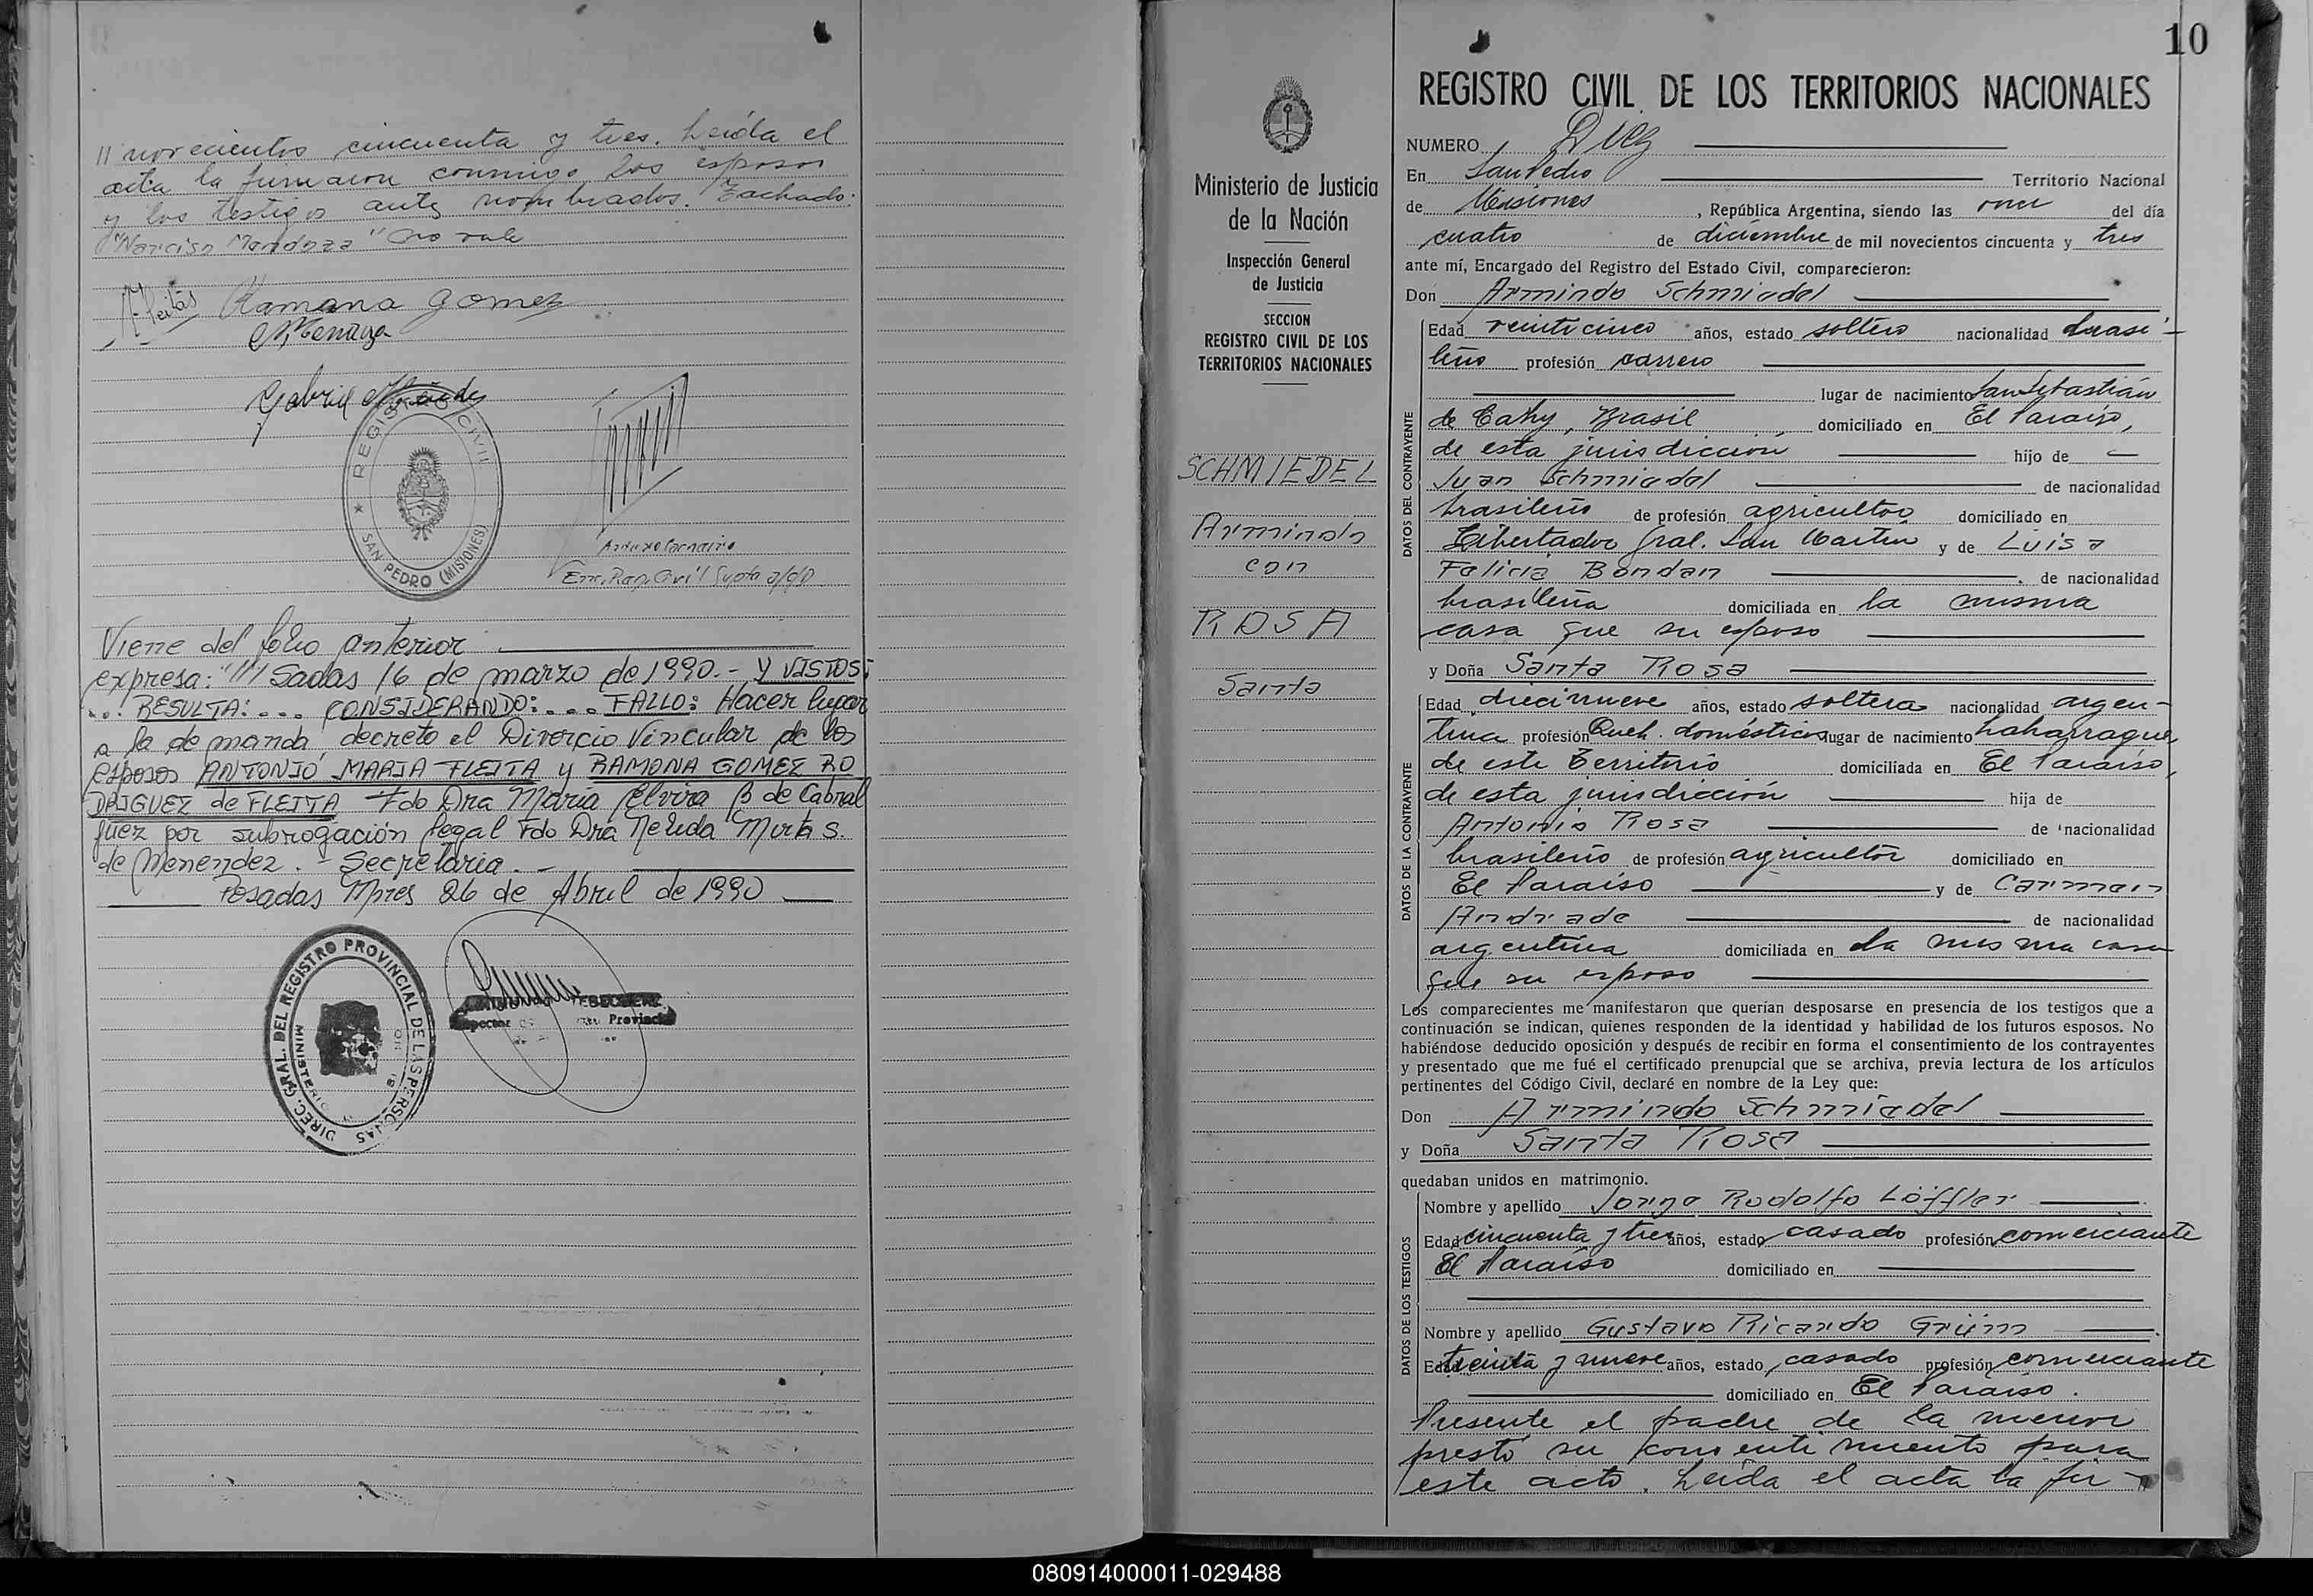 // novecientos cincuenta y tres. Leída el
acta la firmaron conmigo los esposos
y los testigos antes nombrados. Tachado:
"Narciso Mendoza" No vale
Ramona Gomez
Gabriel
REGISTRO CIVIL
SAN PEDRO (MISIONES)
Enc. Reg. Civil
Viene del folio anterior
expresa: "///sadas 16 de marzo de 1990.- Y VISTOS:
... RESULTA: ... CONSIDERANDO: ... FALLO: Hacer lugar
a la demanda decreto el Divorcio Vincular de los
esposos ANTONIO MARIA FLEITA y RAMONA GOMEZ RO
DRIGUEZ de FLEITA Fdo Dra Maria Elvira B de Cabral
Juez por subrogación legal Fdo Dra Nelida Mirta S.
de Menendez. - Secretaria. -
Posadas Mnes 26 de Abril de 1990
DIREC. GRAL. DEL REGISTRO PROVINCIAL DE LAS PERSONAS
10
Ministerio de Justicia
de la Nación
Inspección General
de Justicia
SECCION
REGISTRO CIVIL DE LOS
TERRITORIOS NACIONALES
SCHMIEDEL
Armindo
con
ROSA
Santa
REGISTRO CIVIL DE LOS TERRITORIOS NACIONALES
NUMERO Diez
En San Pedro Territorio Nacional
de Misiones, República Argentina, siendo las once del día
cuatro de diciembre de mil novecientos cincuenta y tres
ante mí, Encargado del Registro del Estado Civil, comparecieron:
Don Armindo Schmiedel
DATOS DEL CONTRAYENTE
Edad veinticinco años, estado soltero nacionalidad brasi-
leño profesión carrero
lugar de nacimiento San Sebastián
de Cahy, Brasil domiciliado en El Paraíso,
de esta jurisdicción hijo de
Juan Schmiedel de nacionalidad
brasileño de profesión agricultor domiciliado en
Libertador Gral. San Martin y de Luisa
Felicia Bondan de nacionalidad
brasileña domiciliada en la misma
casa que su esposo
y Doña Santa Rosa
DATOS DE LA CONTRAYENTE
Edad diecinueve años, estado soltera nacionalidad argen-
tina profesión Queh. domésticos lugar de nacimiento
de este Territorio domiciliada en El Paraíso,
de esta jurisdicción hija de
Antonio Rosa de nacionalidad
brasileño de profesión agricultor domiciliado en
El Paraíso y de Carmen
Andrade de nacionalidad
argentina domiciliada en la misma casa
que su esposo
Los comparecientes me manifestaron que querían desposarse en presencia de los testigos que a
continuación se indican, quienes responden de la identidad y habilidad de los futuros esposos. No
habiéndose deducido oposición y después de recibir en forma el consentimiento de los contrayentes
y presentado que me fué el certificado prenupcial que se archiva, previa lectura de los artículos
pertinentes del Código Civil, declaré en nombre de la Ley que:
Don Armindo Schmiedel
y Doña Santa Rosa
quedaban unidos en matrimonio.
DATOS DE LOS TESTIGOS
Nombre y apellido Jorge Rodolfo Löffler
Edad cincuenta y tres años, estado casado profesión comerciante
El Paraíso domiciliado en
Nombre y apellido Gustavo Ricardo Grüm
Edad treinta y nueve años, estado casado profesión comerciante
domiciliado en El Paraíso.
Presente el padre de la menor
prestó su consentimiento para
este acto. Leída el acta la fir-
080914000011-029488